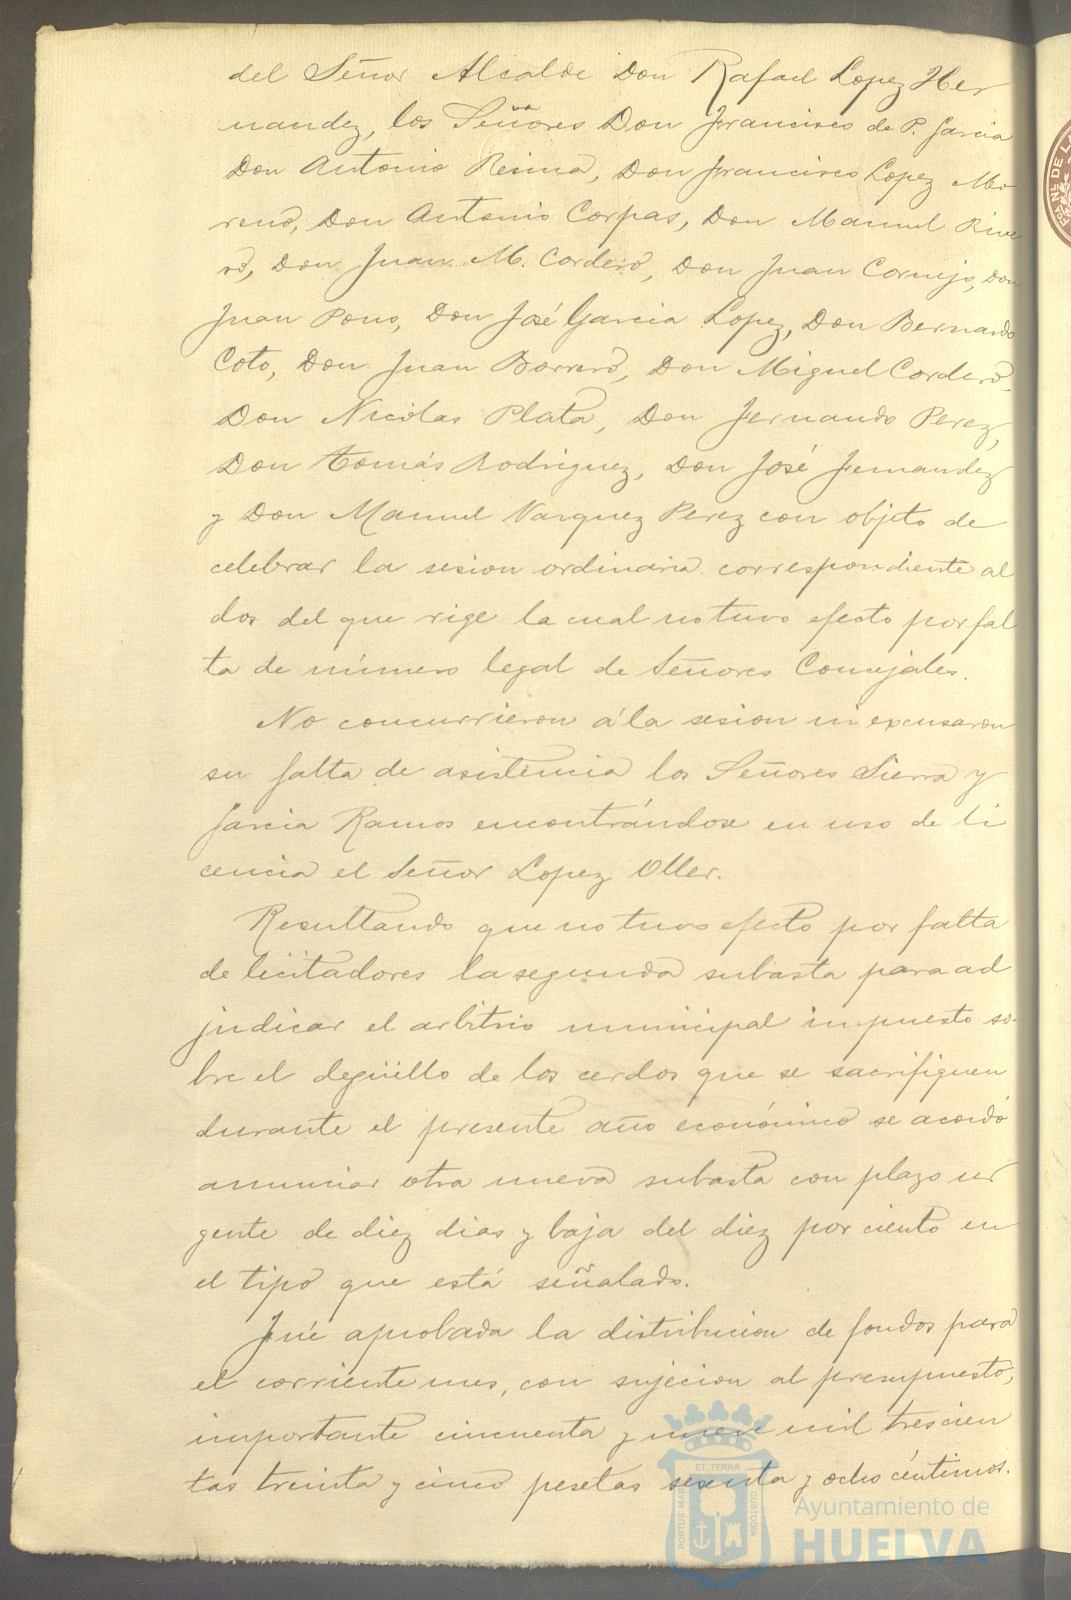 del Señor Alcalde Don Rafael Lopez Her
nandez, los Señores Don Francisco de P. Garcia
Don Antonio Resina, Don Francisco Lopez Mo
reno, Don Antonio Corpas, Don Manuel Rive
ro, Don Juan M. Cordero, Don Juan Cornejo, Don
Juan Pons, Don José Garcia Lopez, Don Bernardo
Coto, Don Juan Borrero, Don Miguel Cordero,
Don Nicolas Plata, Don Fernando Perez,
Don Tomás Rodriguez, Don José Fernandez
y Don Manuel Vazquez Perez con objeto de
celebrar la sesion ordinaria correspondiente al
dos del que rige la cual no tuvo efecto por fal
ta de número legal de Señores Concejales.
No concurrieron á la sesion ni excusaron
su falta de asistencia los Señores Sierra y
Garcia Ramos encontrándose en uso de li
cencia el Señor Lopez Oller.
Resultando que no tuvo efecto por falta
de licitadores la segunda subasta para ad
judicar el arbitrio municipal impuesto so-
bre el degüello de los cerdos que se sacrifiquen
durante el presente año económico se acordó
anunciar otra nueva subasta con plazo ur
gente de diez dias y baja del diez por ciento en
el tipo que está señalado.
Fué aprobada la distribucion de fondos para
el corriente mes, con sujecion al presupuesto,
importante cincuenta y nueve mil trescien
tas treinta y cinco pesetas sesenta y ocho céntimos.
ET TERRÆ
PORTUS MARIS
CUSTODIA
Ayuntamiento de
HUELVA